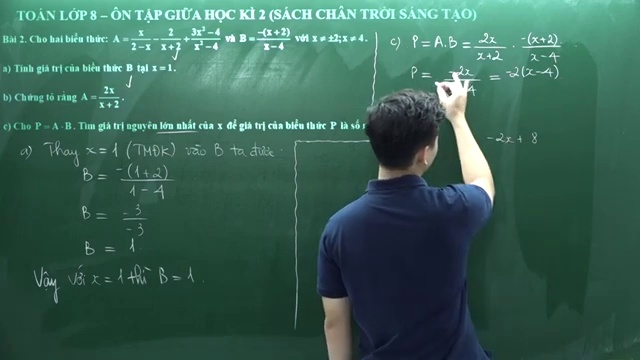 TOÁN LỚP 8 – ÔN TẬP GIỮA HỌC KÌ 2 (SÁCH CHÂN TRỜI SÁNG TẠO)
Bài 2. Cho hai biểu thức: A = x/(2-x) - 2/(x+2) + (3x²-4)/(x²-4) và B = -(x+2)/(x-4) với x ≠ ±2; x ≠ 4.
a) Tính giá trị của biểu thức B tại x = 1.
b) Chứng tỏ rằng A = 2x/(x+2).
c) Cho P = A · B. Tìm giá trị nguyên lớn nhất của x để giá trị của biểu thức P là số
a) Thay x = 1 (TMĐK) vào B ta được:
B = -(1+2)/(1-4)
B = -3/-3
B = 1.
Vậy với x = 1 thì B = 1.
c) P = A.B = 2x/(x+2) . -(x+2)/(x-4)
P = -2x/ 4 = -2(x-4)
-2x + 8